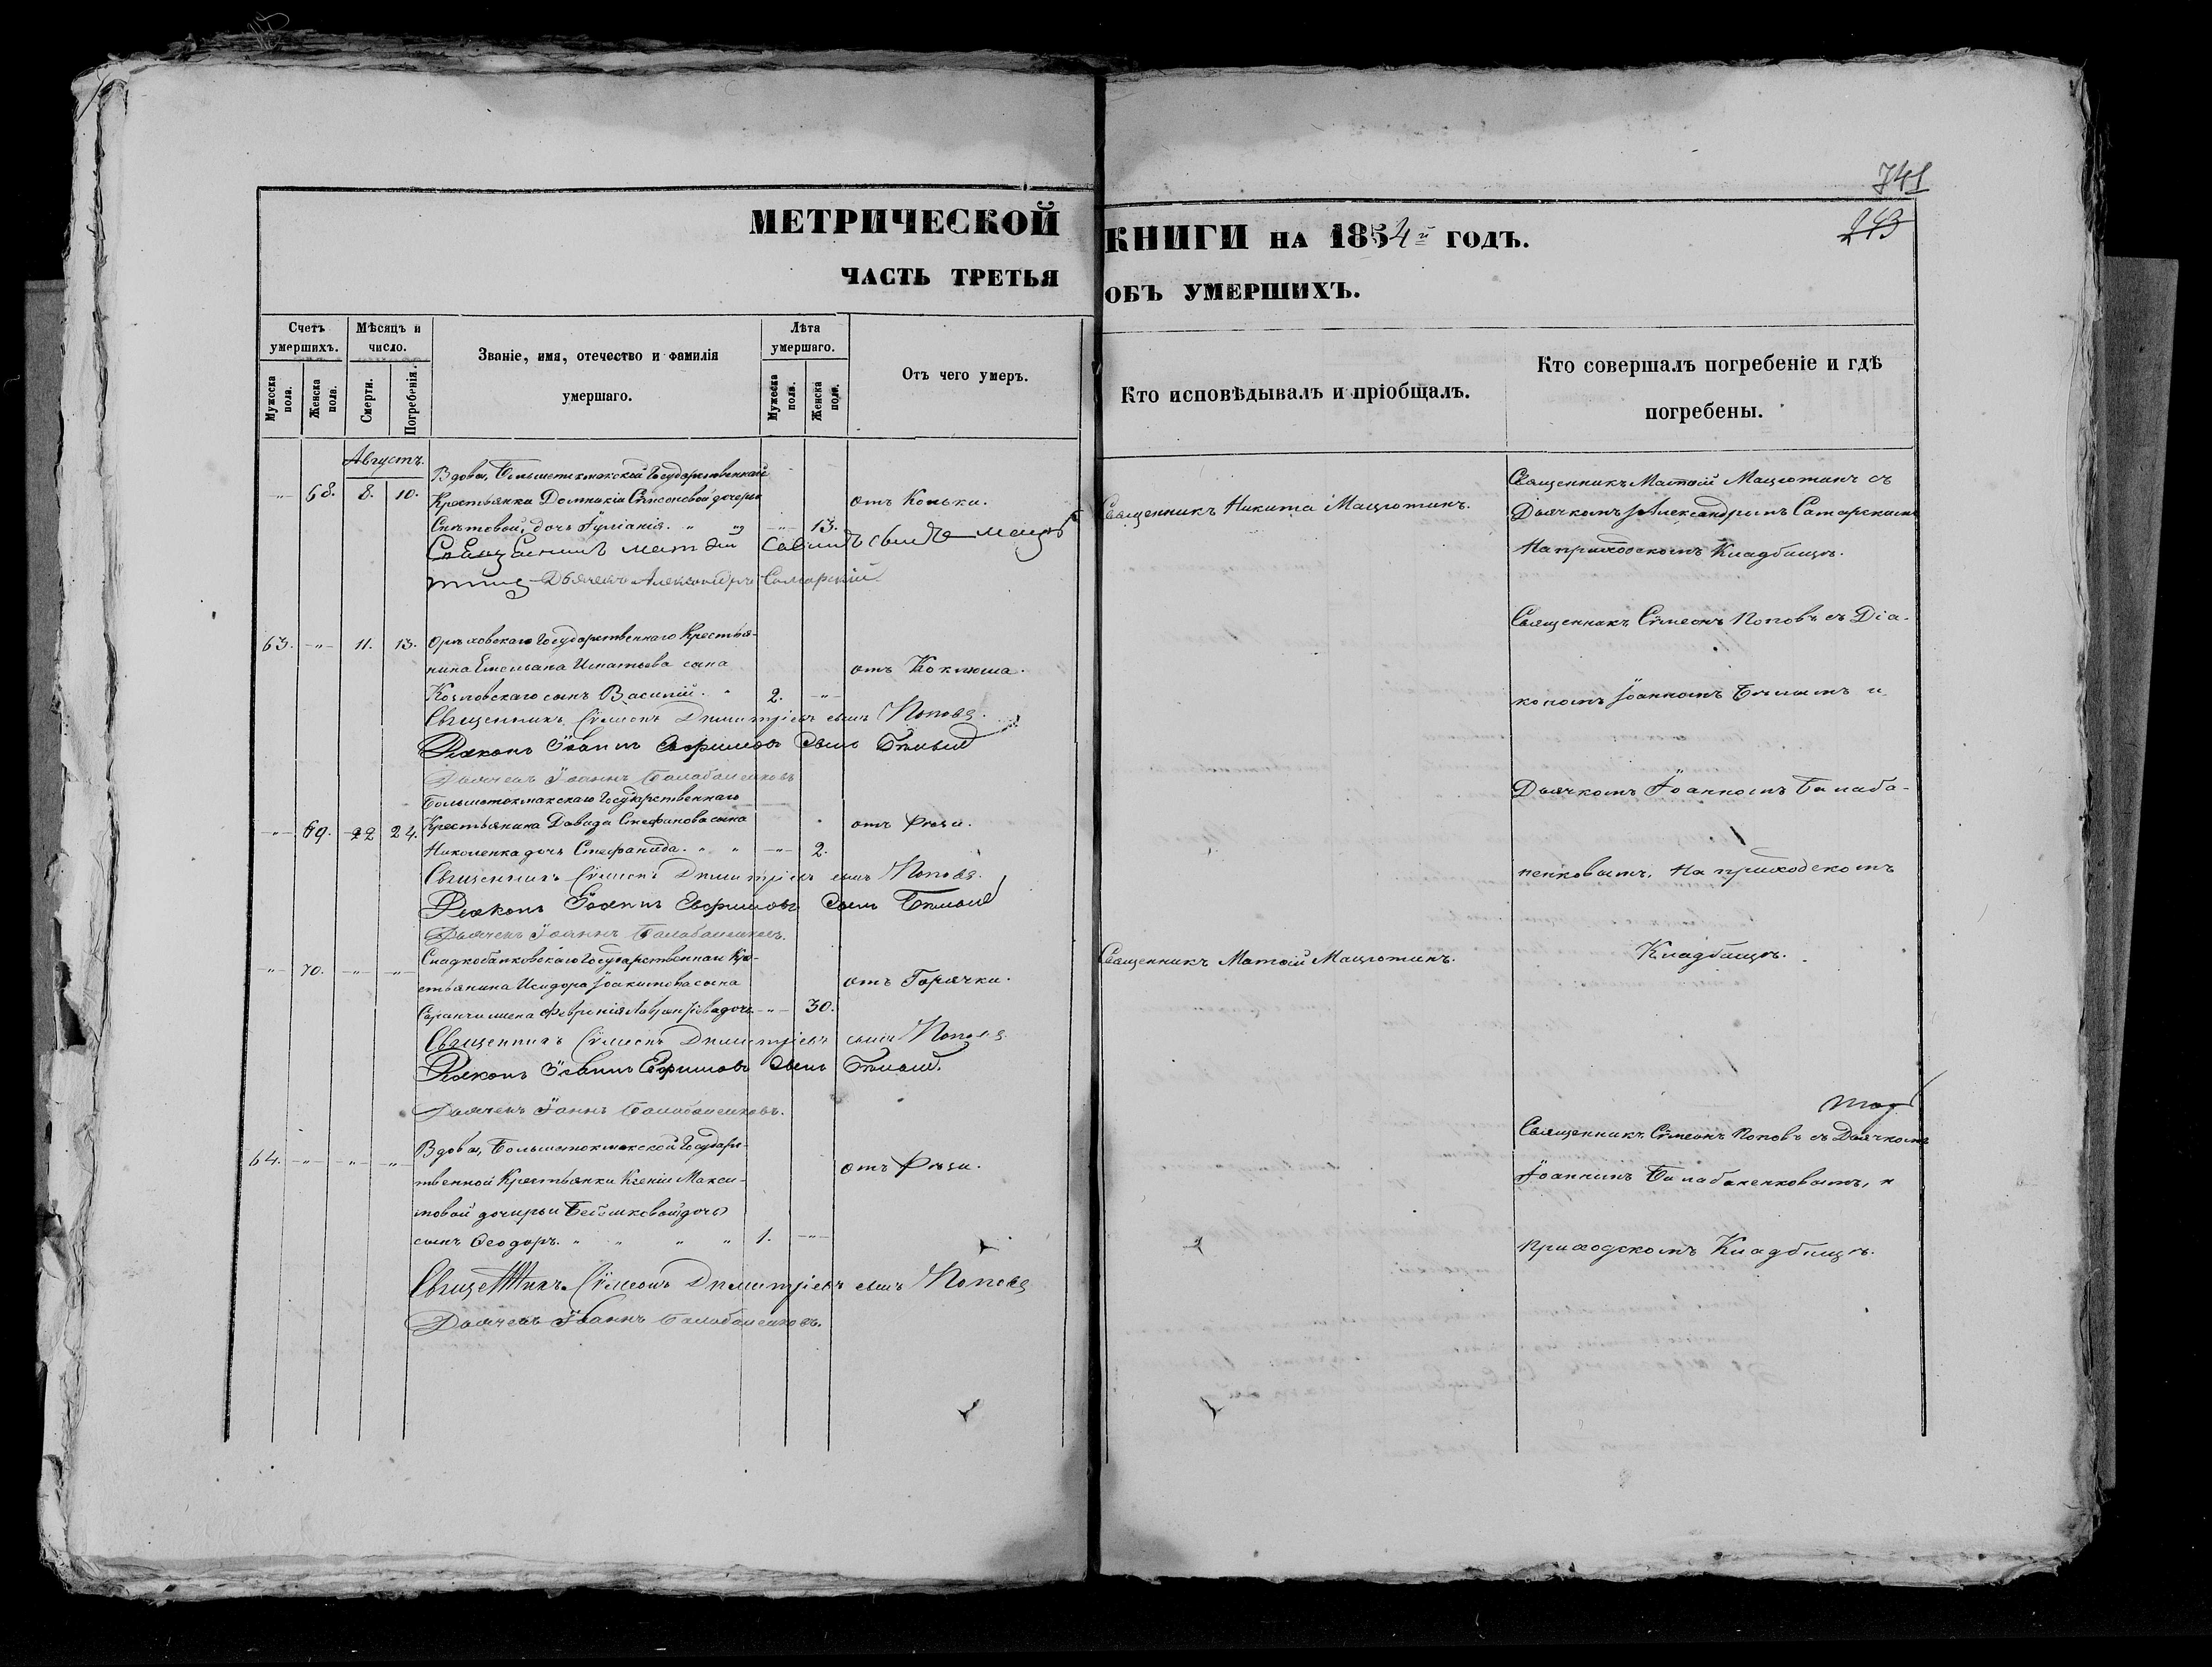 741
243
МЕТРИЧЕСКОЙ КНИГИ НА 1854й ГОДЪ.
ЧАСТЬ ТРЕТЬЯ ОБЪ УМЕРШИХЪ.
Счетъ умершихъ.
Мужеска пола.
Женска пола.
Мѣсяцъ и число.
Смерти.
Погребенія.
Званіе, имя, отечество и фамилія умершаго.
Лѣта умершаго.
Мужеска пола.
Женска пола.
Отъ чего умеръ.
Кто исповѣдывалъ и пріобщалъ.
Кто совершалъ погребеніе и гдѣ погребены.
Августъ.
Вдовы, Большетокмакской Государственной
-"- 68. 8. 10. Крестьянки Домникіи Сѵмсоновой дочери
Снѣтовой, дочь Іуліанія. " " -"- 13. отъ Колики.
Священникъ Никита Мацютинъ.
Священникъ Матѳій Мацютинъ съ
Дьячкомъ Александромъ Самарскимъ
На приходскомъ Кладбищѣ.
Священникъ Матѳій Саввинъ сынъ Мацю
тинъ Дьячекъ Александръ Самарскій.
63. -"- 11. 13. Орѣховскаго Государственнаго Крестья-
нина Емельяна Игнатьева сына
Козловскаго сынъ Василій. " 2. -"- отъ Коклюша.
Священникъ Сѵмеонъ Димитріевъ сынъ Поповъ.
Діаконъ Іоаннъ Евфимовъ сынъ Бѣлый
Дьячекъ Іоаннъ Балабаненковъ
Священникъ Сѵмеонъ Поповъ съ Діа-
кономъ Іоанномъ Бѣлымъ и
Дьячкомъ Іоанномъ Балаба-
ненковымъ, На приходскомъ
Кладбищѣ.
Большетокмакскаго Государственнаго
-"- 69. 22 24. Крестьянина Давида Стефанова сына
Николенка дочь Стефанида. " " -"- 2. отъ Рѣзи.
Священникъ Сѵмеонъ Димитріевъ сынъ Поповъ.
Діаконъ Іоаннъ Евфимовъ сынъ Бѣлый
Дьячекъ Іоаннъ Балабаненковъ.
Сладкобалковскаго Государственнаго Кре-
-"- 70. -"- -"- стьянина Исидора Іоакимова сына
жена Февронія Лаврентіева дочь -"- 30. отъ Горячки.
Священникъ Матѳій Мацютинъ.
Священникъ Сѵмеонъ Димитріевъ сынъ Поповъ
Діаконъ Іоаннъ Евфимовъ сынъ Бѣлый.
Дьячекъ Іоаннъ Балабаненковъ.
64. -"- -"- -"- Вдовы, Большетокмакской Государ-
ственной Крестьянки Ксеніи Макси-
мовой дочерьи
сынъ Ѳеодоръ. " " " " 1. -"- отъ Рѣзи.
Священникъ Сѵмеонъ Поповъ съ Дьячкомъ
Іоанномъ Балабаненковымъ, н
приходскомъ Кладбищѣ.
Священникъ Сѵмеонъ Димитріевъ сынъ Поповъ
Дьячекъ Іоаннъ Балабаненковъ.